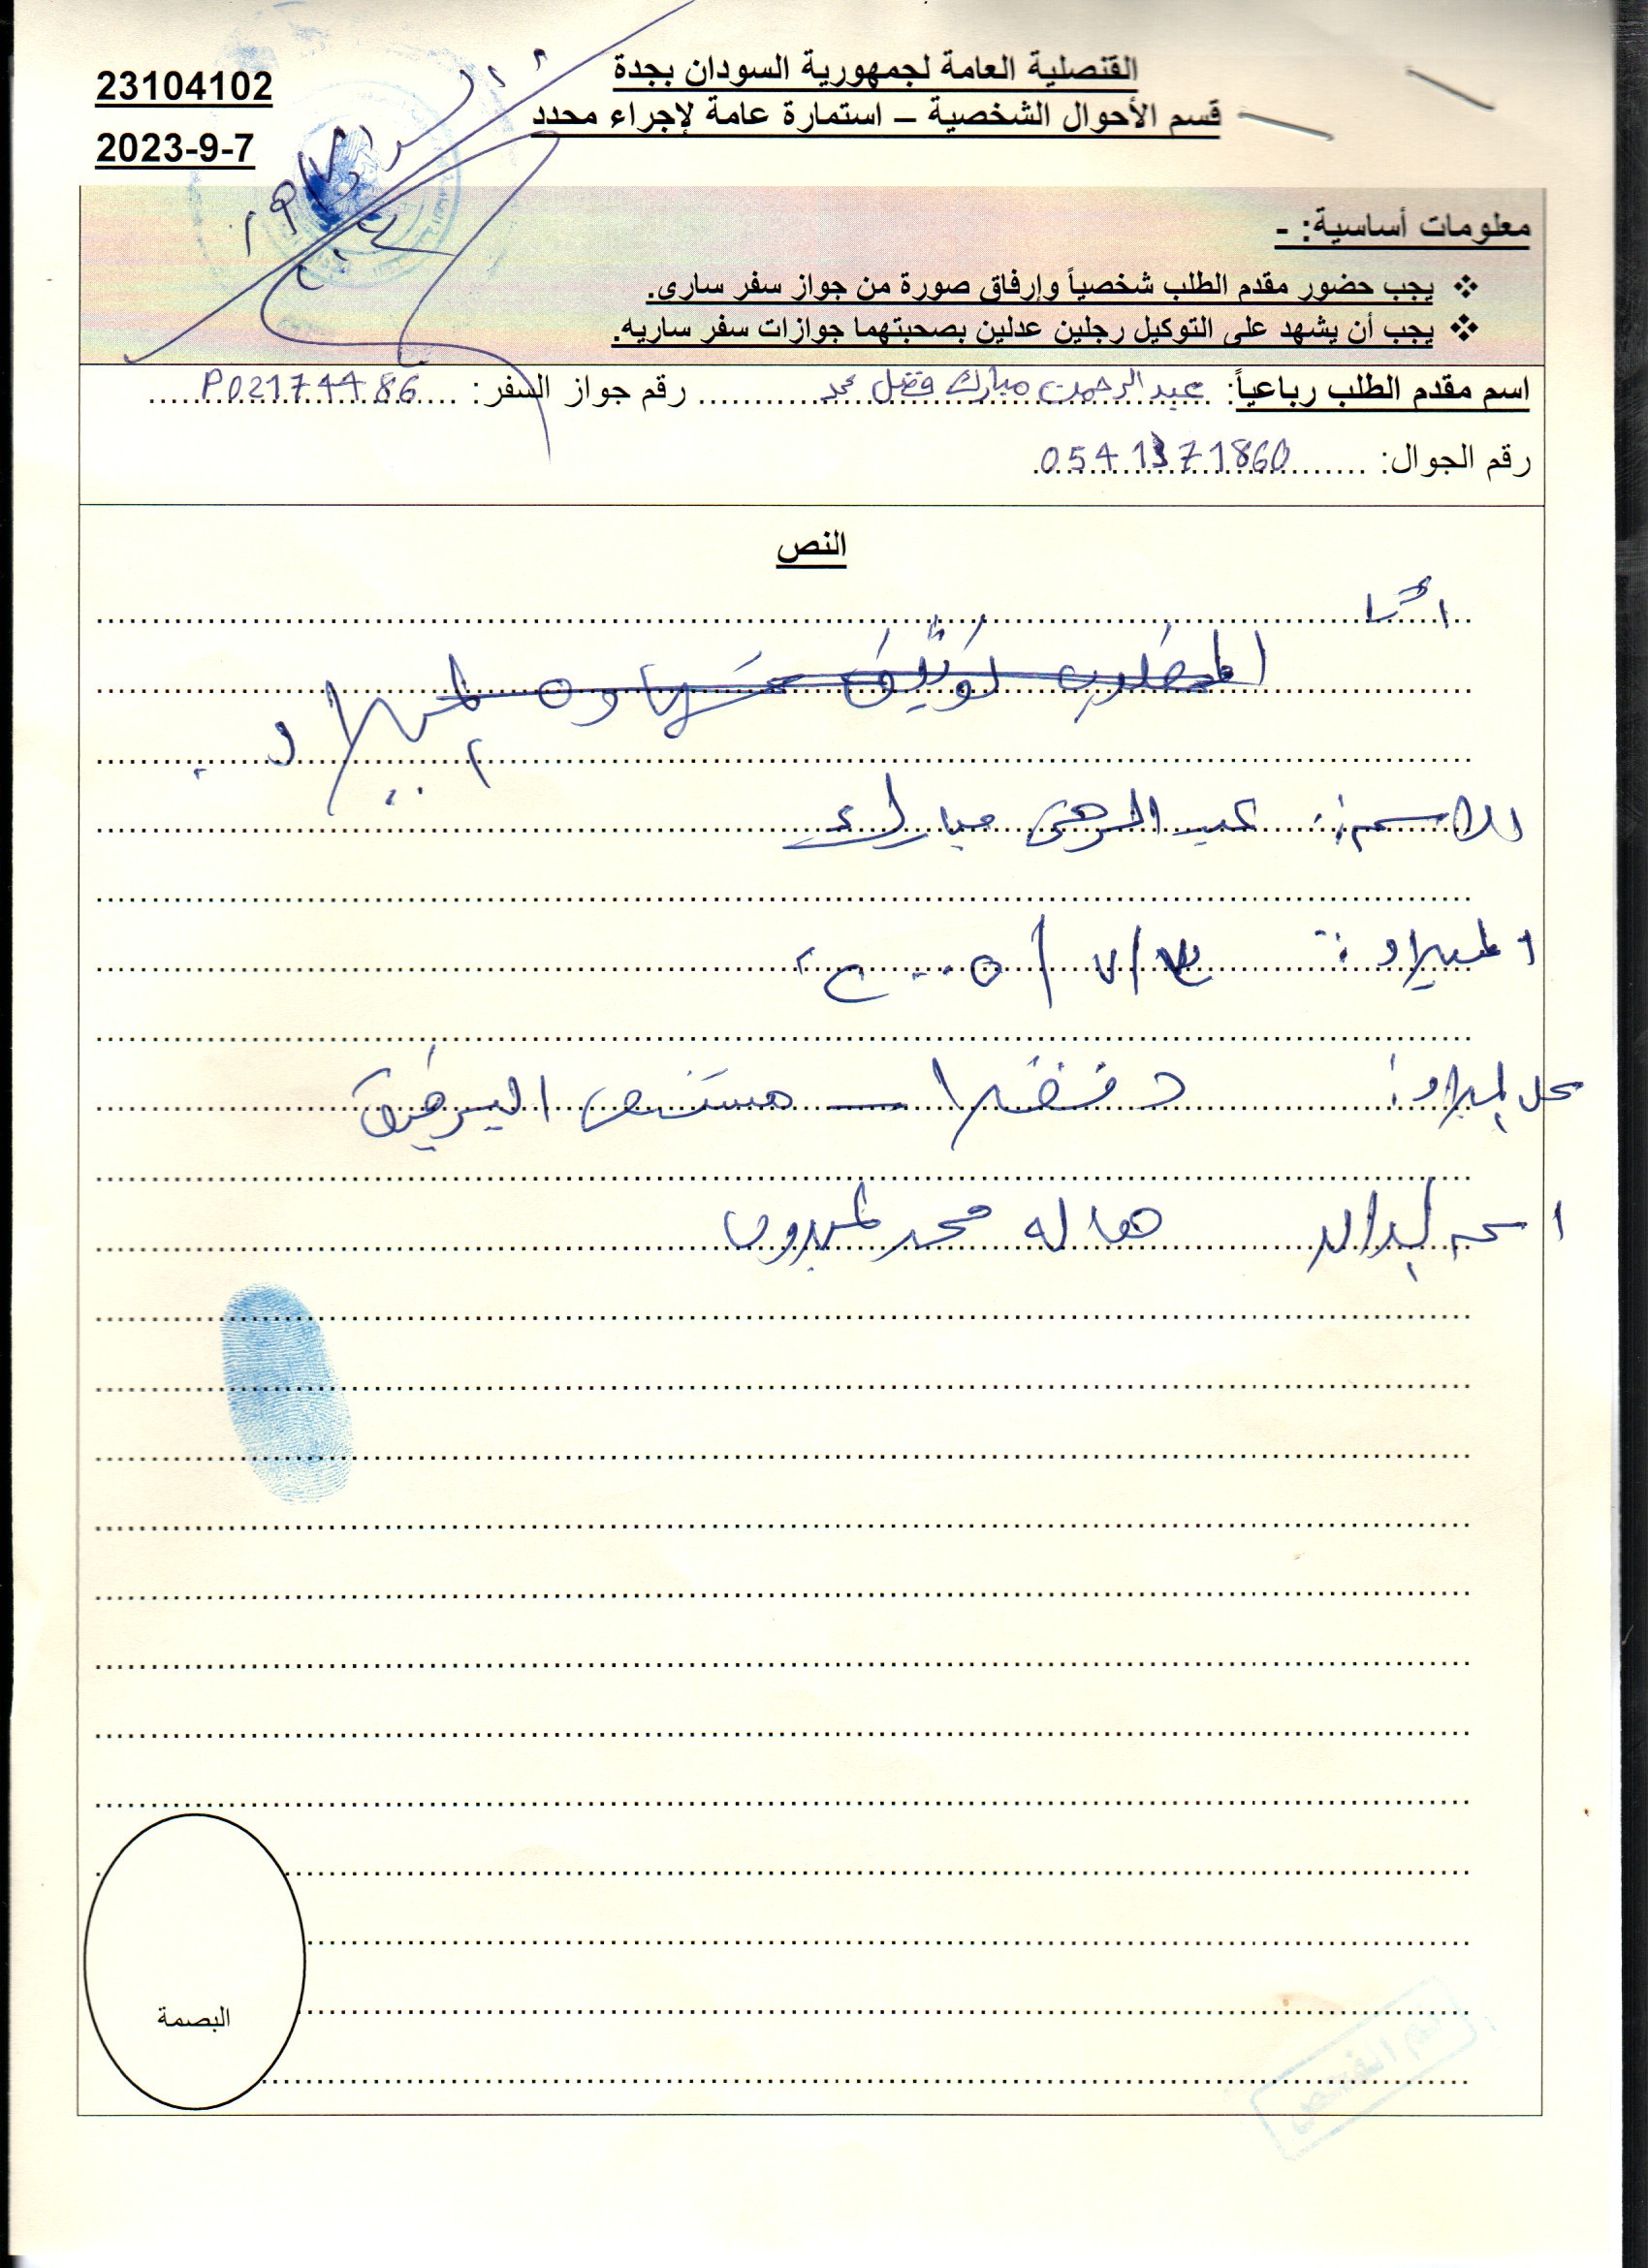 23104102
2023-9-7
القنصلية العامة لجمهورية السودان بجدة
قسم الأحوال الشخصية – استمارة عامة لإجراء محدد
معلومات أساسية: -
❖ يجب حضور مقدم الطلب شخصياً وإرفاق صورة من جواز سفر سارى.
❖ يجب أن يشهد على التوكيل رجلين عدلين بصحبتهما جوازات سفر ساريه.
اسم مقدم الطلب رباعياً: عبد الرحمن مبارك فضل محمد رقم جواز السفر: P02174486
رقم الجوال: 0541371860
النص
أنا
المطلوب توثيق شهادة الميلاد
الاسم: عبد الرحمن مبارك
الميلاد: /٧/٢٠٠٥
محل الميلاد: دنقلا – مستشفى
اسم الوالد هاله محمد
البصمة
تم الفحص